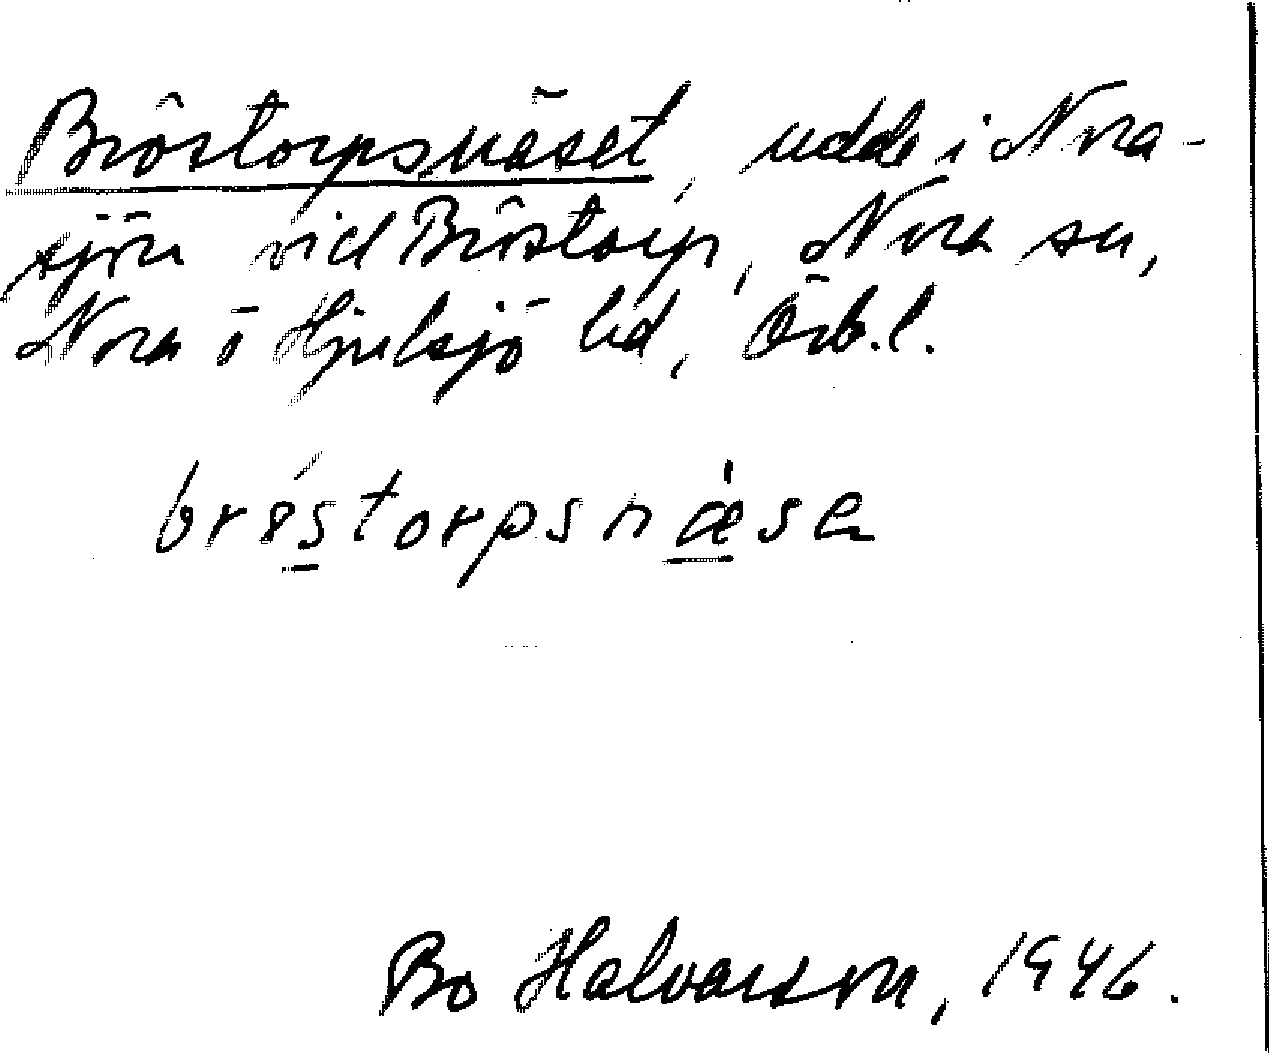 Bröstorpsnäset, udde i Nora-
sjön vid Bröstorp, Nora sn,
Nora ö Hjulsjö bd, Örb.l.
bröstorpsnæsa
Bo Halvarson, 1946.